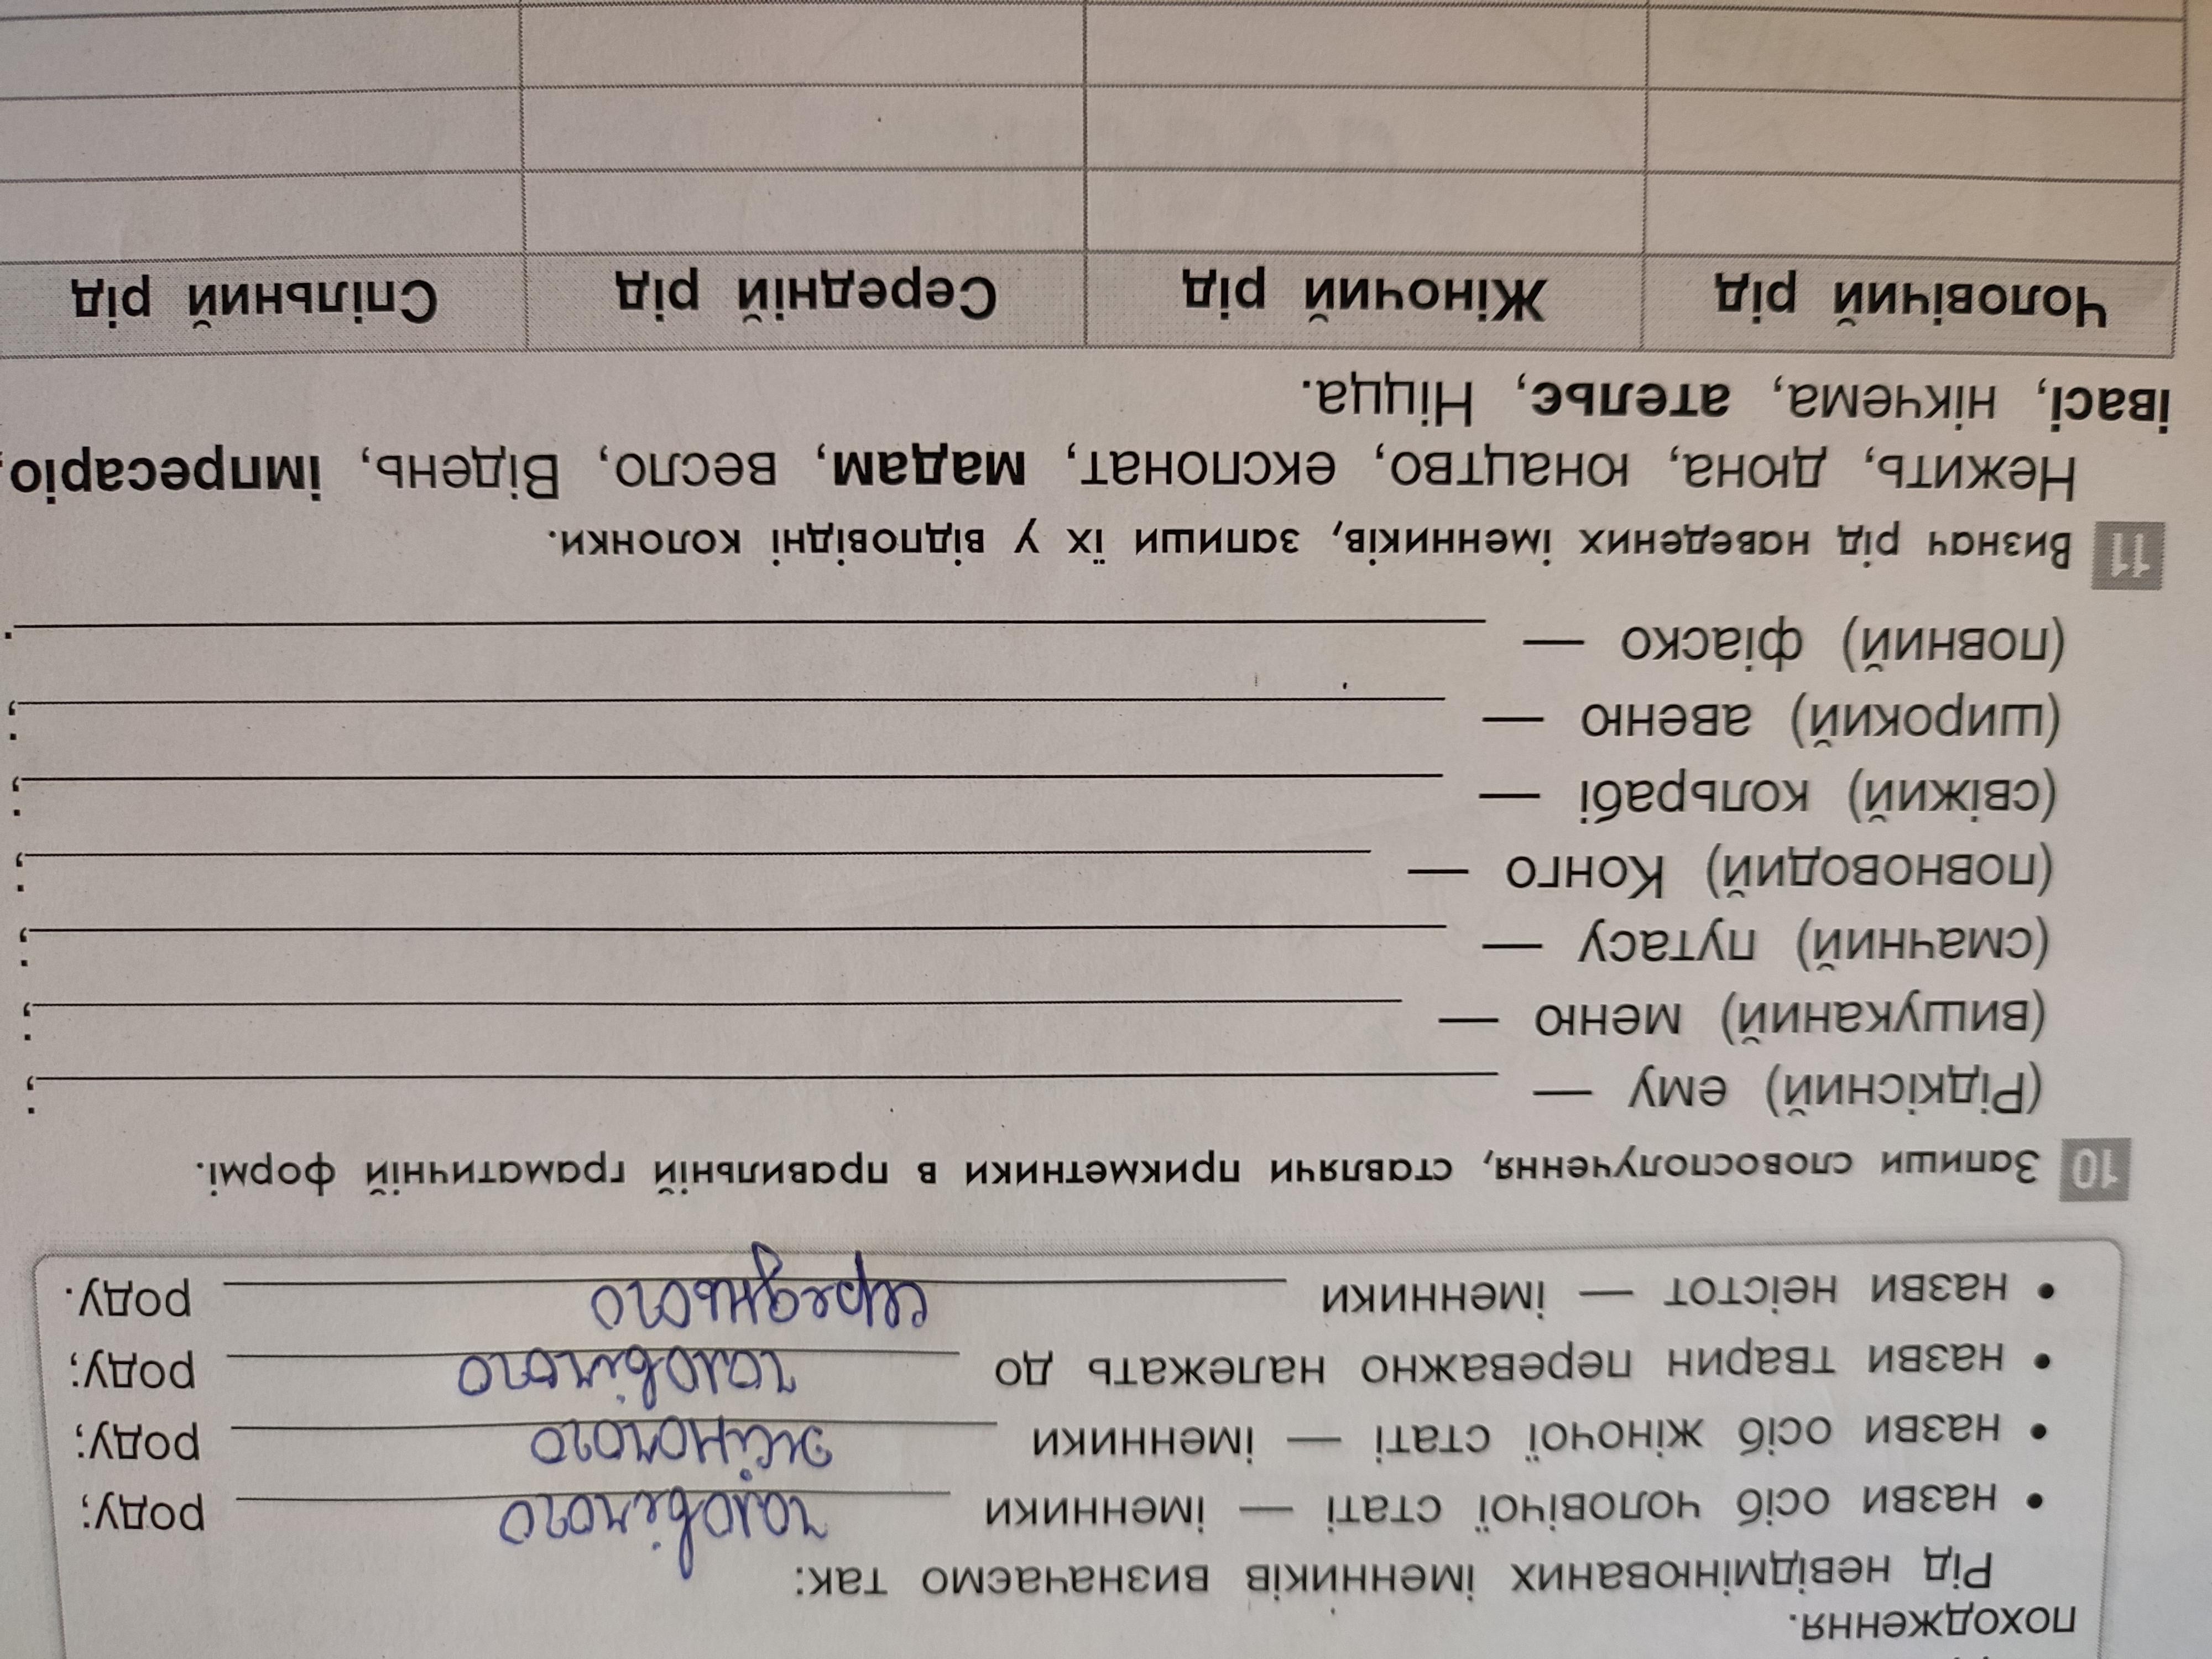 походження.
Рід невідмінюваних іменників визначаємо так:
• назви осіб чоловічої статі — іменники чоловічого роду;
• назви осіб жіночої статі — іменники жіночого роду;
• назви тварин переважно належать до чоловічого роду;
• назви неістот — іменники середнього роду.
10 Запиши словосполучення, ставлячи прикметники в правильній граматичній формі.
(Рідкісний) ему — ;
(вишуканий) меню — ;
(смачний) путасу — ;
(повноводий) Конго — ;
(свіжий) кольрабі — ;
(широкий) авеню — ;
(повний) фіаско — .
11 Визнач рід наведених іменників, запиши їх у відповідні колонки.
Нежить, дюна, юнацтво, експонат, мадам, весло, Відень, імпресаріо,
івасі, нікчема, ательє, Ніцца.
Чоловічий рід Жіночий рід Середній рід Спільний рід